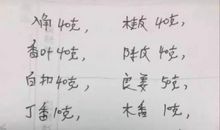 八角40克, 桂皮40克,
香叶40克, 陈皮40克,
白扣40克, 良姜50克,
丁香10克, 木香10克,